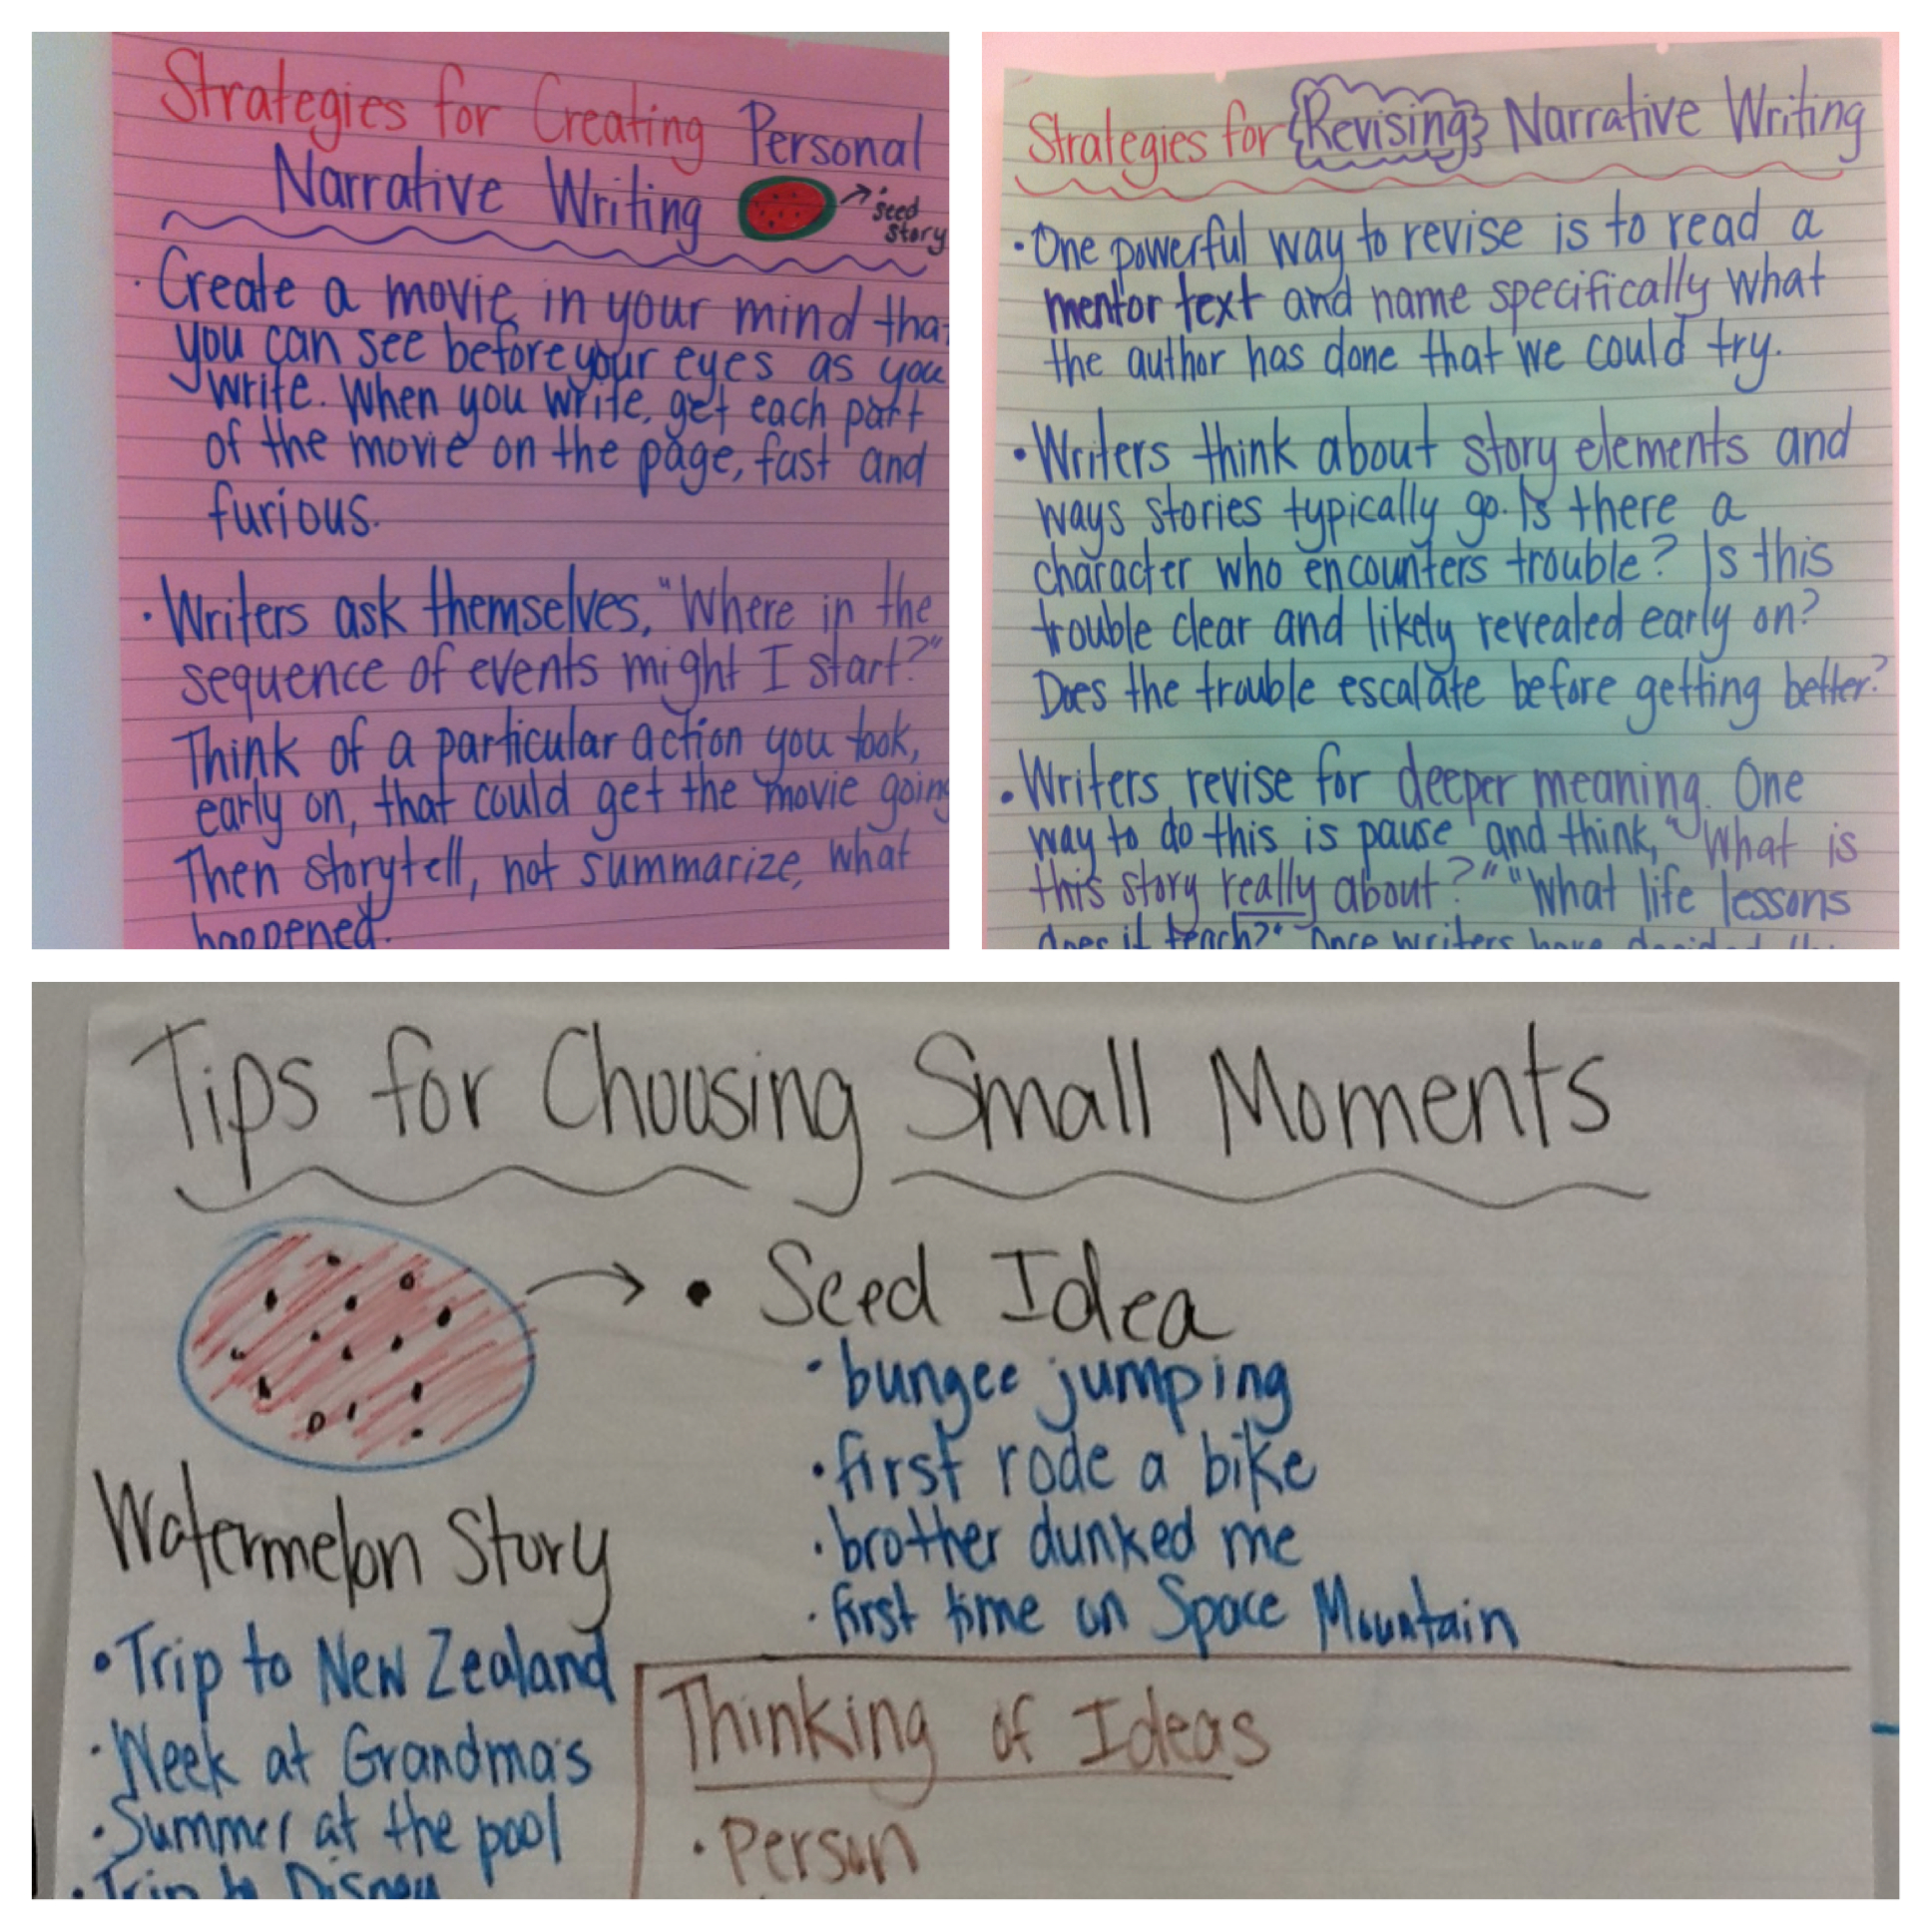 Strategies for Creating Personal
Narrative Writing
seed
story
· Create a movie in your mind tha
you can see before your eyes as you
write. When you write, get each part
of the movie on the page, fast and
furious.
· Writers ask themselves, "Where in the
sequence of events might I start?"
Think of a particular action you took,
early on, that could get the movie going
Then storytell, not summarize, what
happened.
Strategies for Revising Narrative Writing
· One powerful way to revise is to read a
mentor text and name specifically what
the author has done that we could try.
· Writers think about story elements and
ways stories typically go. Is there a
character who encounters trouble? Is this
trouble clear and likely revealed early on?
Does the trouble escalate before getting better?
· Writers revise for deeper meaning. One
way to do this is pause and think, "What is
this story really about?" "What life lessons
does it teach?" Once writers have decided
Tips for Choosing Small Moments
• Seed Idea
· bungee jumping
· first rode a bike
· brother dunked me
· first time on Space Mountain
Watermelon Story
• Trip to New Zealand
· Week at Grandma's
· Summer at the pool
· Trip to Disney
Thinking of Ideas
· Person